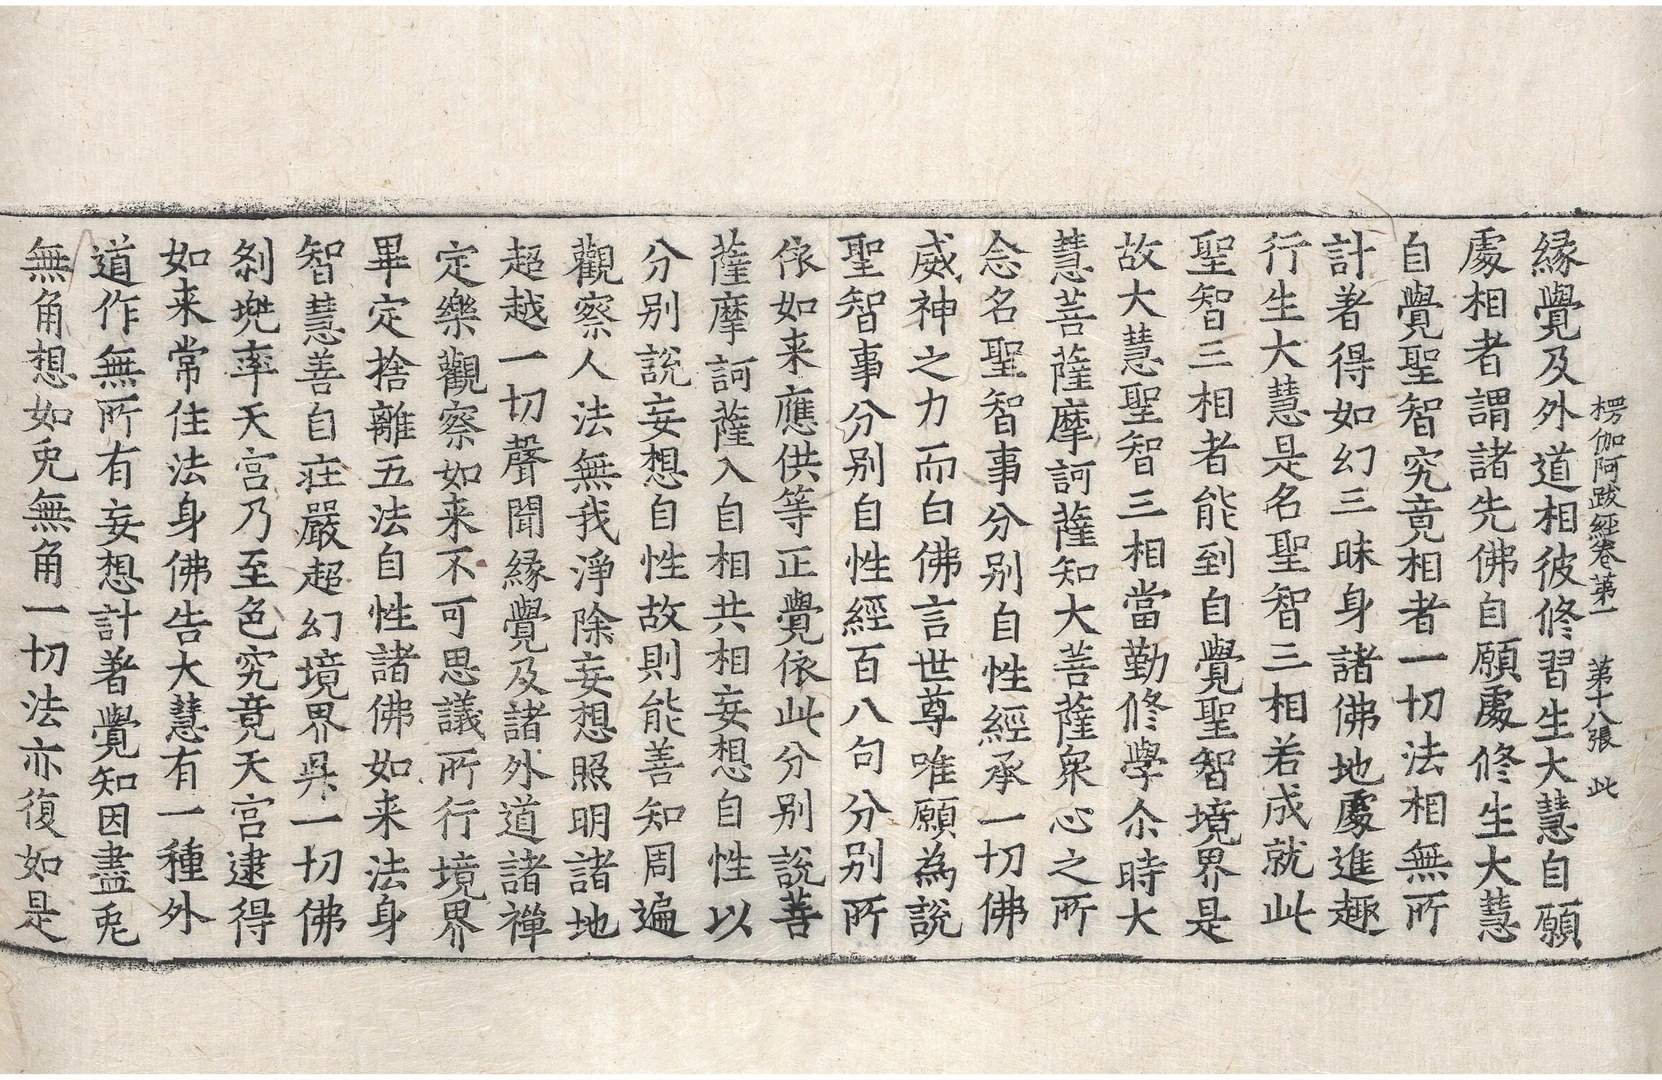 楞伽阿跋經卷第一 第十八張 此
緣覺及外道相彼修習生大慧自願
處相者謂諸先佛自願處修生大慧
自覺聖智究竟相者一切法相無所
計著得如幻三昧身諸佛地處進趣
行生大慧是名聖智三相若成就此
聖智三相者能到自覺聖智境界是
故大慧聖智三相當勤修學尒時大
慧菩薩摩訶薩知大菩薩衆心之所
念名聖智事分別自性經承一切佛
威神之力而白佛言世尊唯願為說
聖智事分別自性經百八句分別所
依如来應供等正覺依此分別說善
薩摩訶薩入自相共相妄想自性以
分別說妄想自性故則能善知周遍
觀察人法無我淨除妄想照明諸地
超越一切聲聞緣覺及諸外道諸禪
定樂觀察如来不可思議所行境界
畢定捨離五法自性諸佛如来法身
智慧善自莊嚴超幻境界昇一切佛
刹兠率天宮乃至色究竟天宮逮得
如来常住法身佛告大慧有一種外
道作無所有妄想計著覺知因盡兎
無角想如兎無角一切法亦復如是